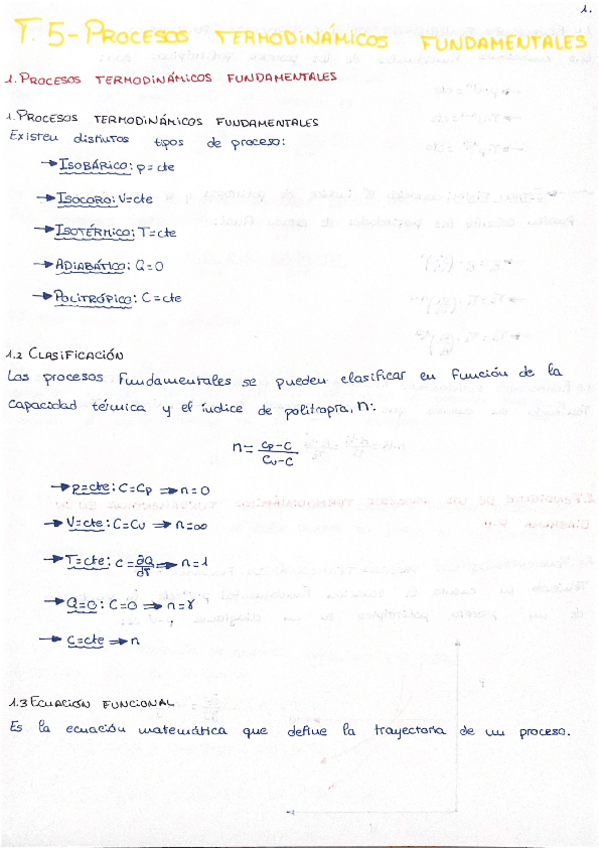 1.
T.5-PROCESOS TERMODINÁMICOS FUNDAMENTALES
1.PROCESOS TERMODINÁMICOS FUNDAMENTALES
1.PROCESOS TERMODINÁMICOS FUNDAMENTALES
Existen distintos tipos de proceso:
→ISOBÁRICO: p=cte
→ISOCORO: V=cte
→ISOTÉRMICO: T=cte
→ADIABÁTICO: Q=0
→POLITRÓPICO: C=cte
1.2 CLASIFICACIÓN
Los procesos fundamentales se pueden clasificar en función de la
capacidad térmica y el índice de politropía, n:
n = (Cp-C)/(Cv-C)
→p=cte: C=Cp ⇒ n=0
→V=cte: C=Cv ⇒ n=∞
→T=cte: C=∂Q/∂T ⇒ n=1
→Q=0: C=0 ⇒ n=γ
→C=cte ⇒ n
1.3 ECUACIÓN FUNCIONAL
Es la ecuación matemática que define la trayectoria de un proceso.